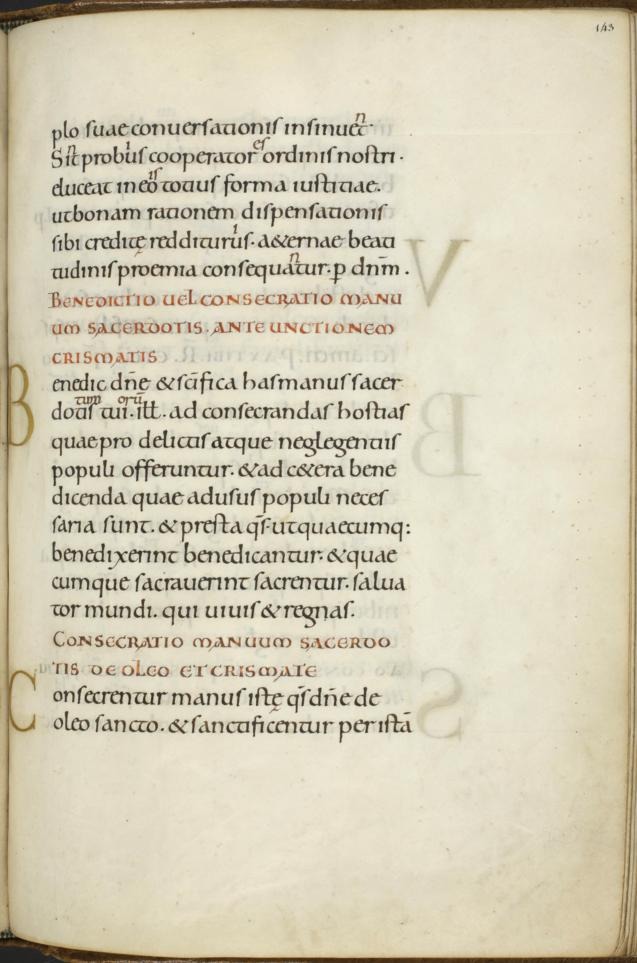 143
plo suae conuersationis insinuet.
Sit probus cooperator ordinis nostri.
eluceat in eo totius forma iustitiae.
ut bonam rationem dispensationis
sibi creditę redditurus. a&ernae beati
tudinis proemia consequatur. p dnm.
BENEDICTIO UEL CONSECRATIO MANU
UM SACERDOTIS. ANTE UNCTIONEM
CRISMATIS
Benedic dñe & scifica has manus sacer
dotis tui. ill. ad consecrandas hostias
quae pro delictis atque neglegentiis
populi offeruntur. & ad c&era bene
dicenda quae ad usus populi neces
saria sunt. & presta qs. ut quaecumq:
benedixerint benedicantur. & quae
cumque sacrauerint sacrentur. salua
tor mundi. qui uiuis & regnas.
CONSECRATIO MANUUM SACERDO
TIS DE OLEO ET CRISMATE
Consecrentur manus istę qs dñe de
oleo sancto. & sanctificentur per istā